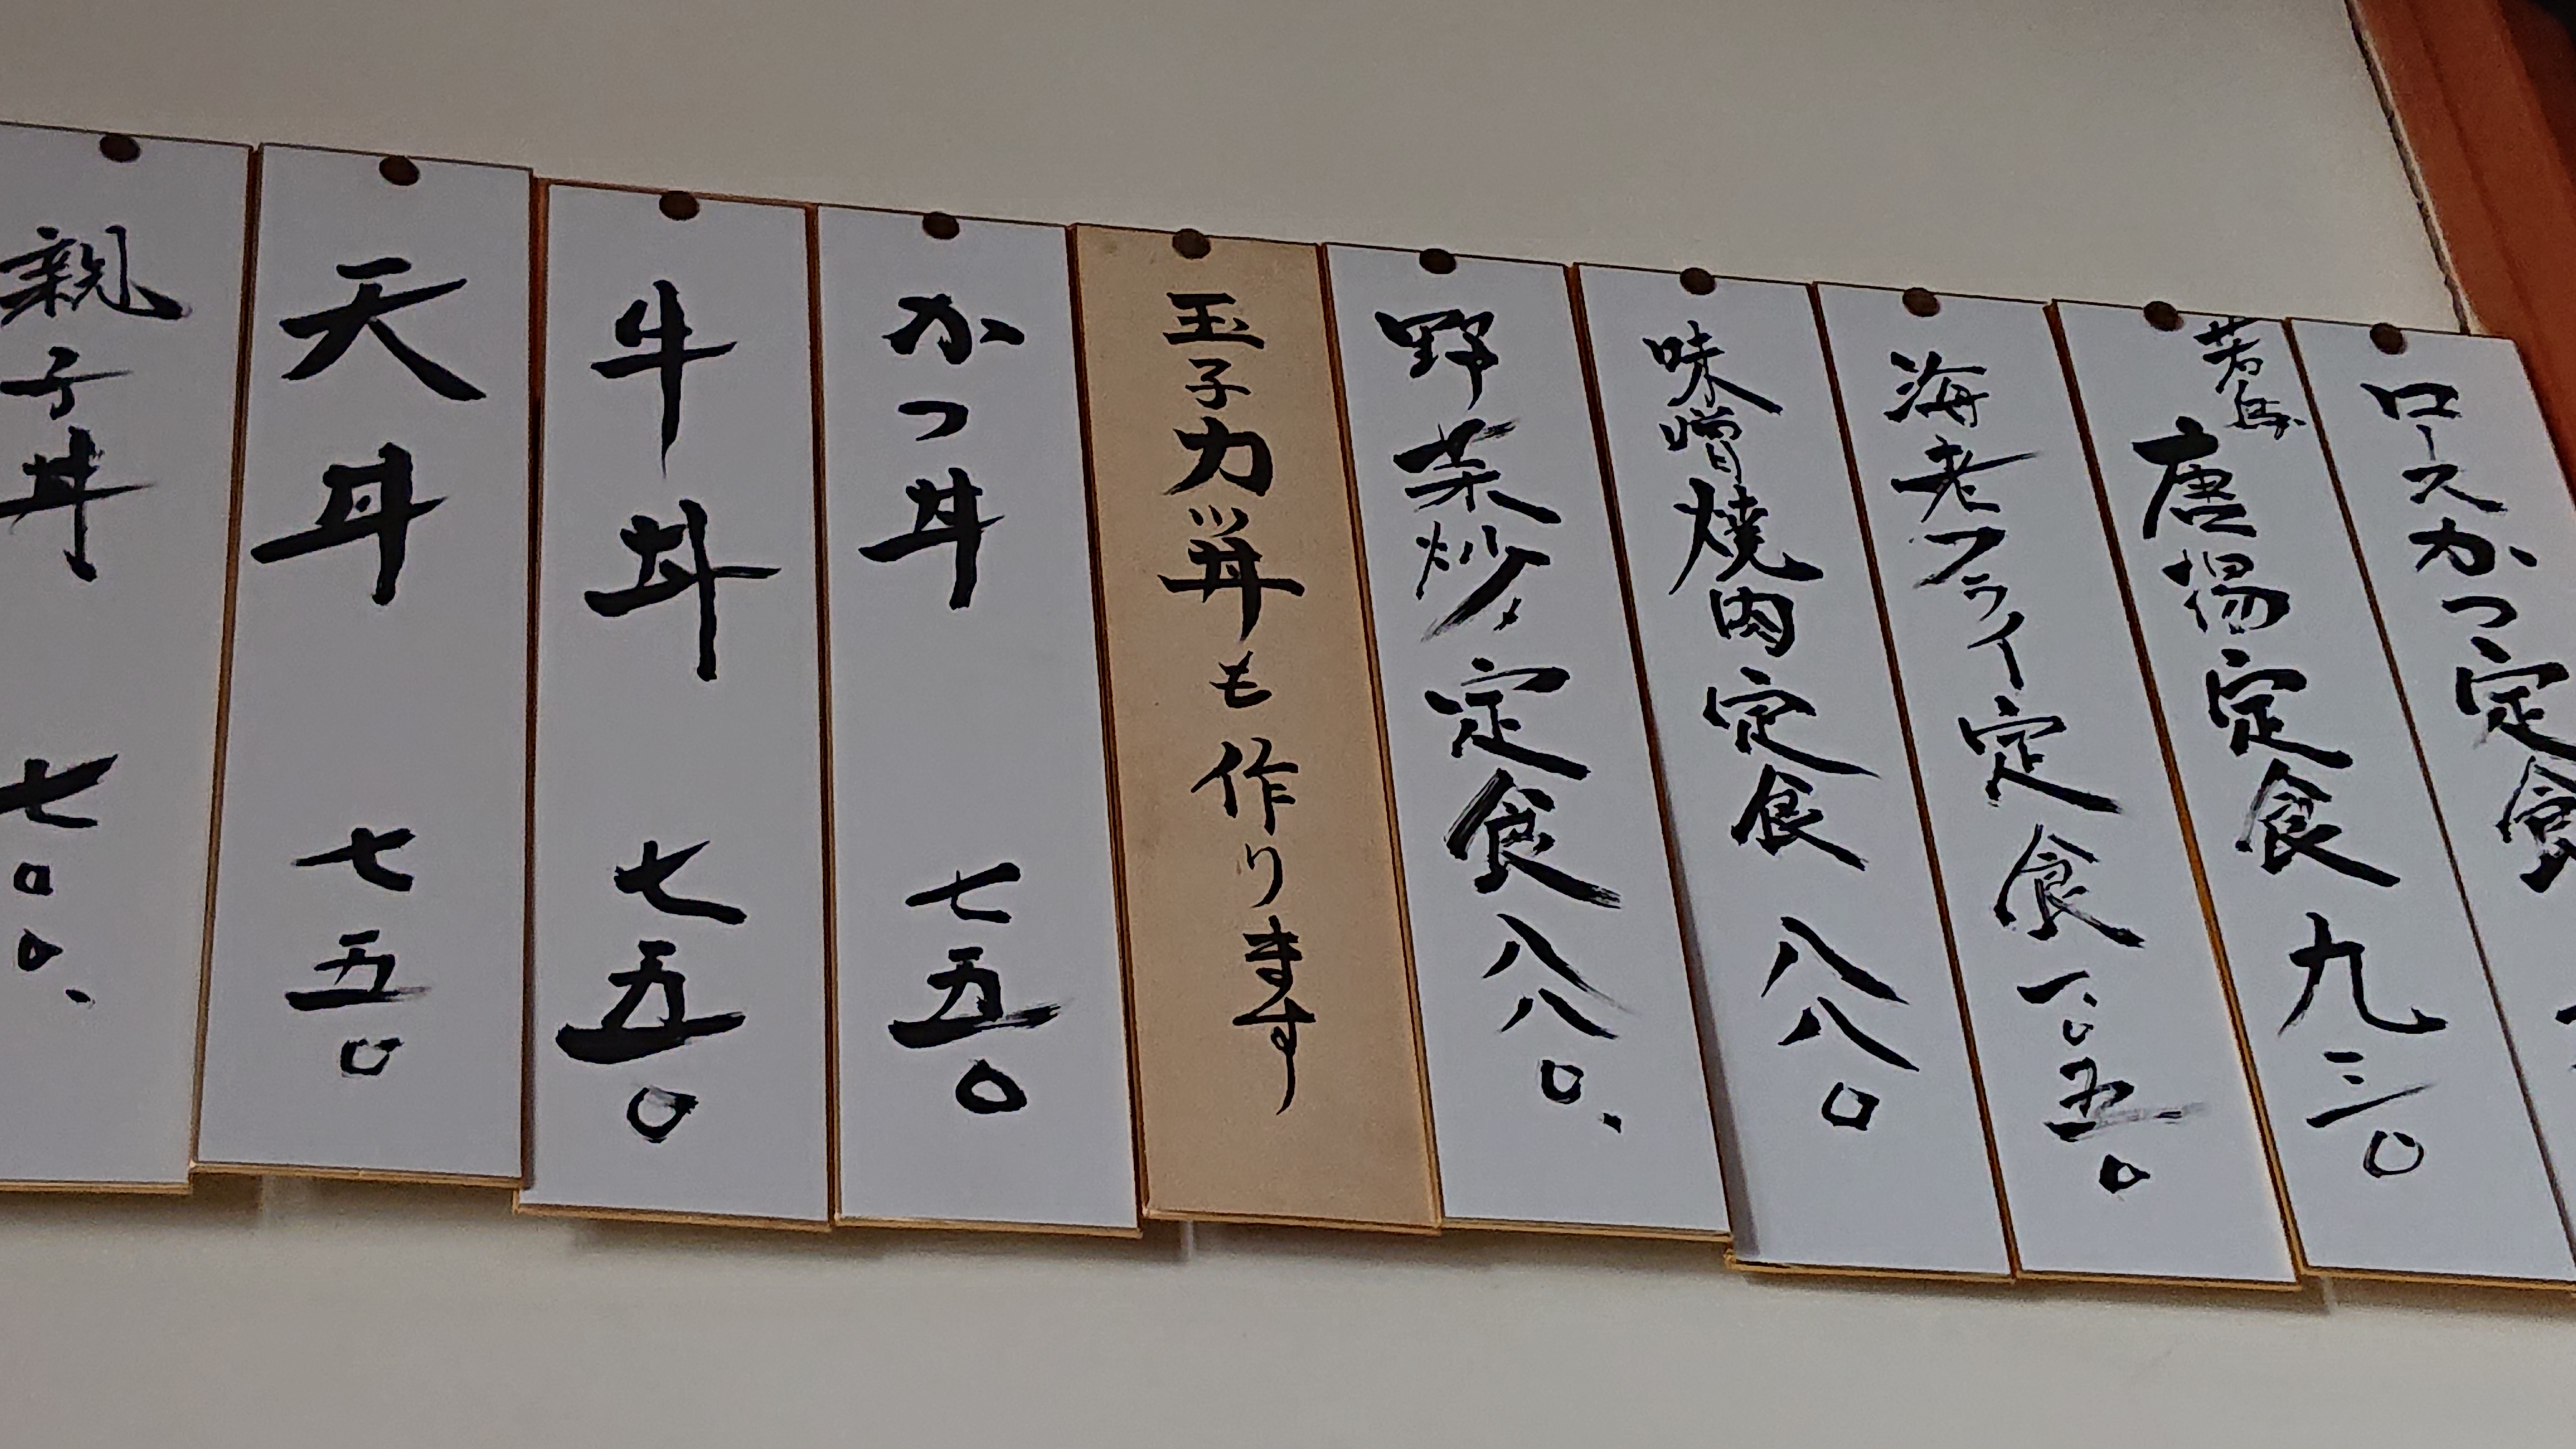 ロースかつ定食
若鳥
唐揚定食 九三〇
海老フライ定食 一、〇五〇
味噌焼肉定食 八八〇
野菜炒〆定食 八八〇.
玉子力丼も作ります
かつ丼 七五〇
牛丼 七五〇
天丼 七五〇
親子丼 七〇〇.